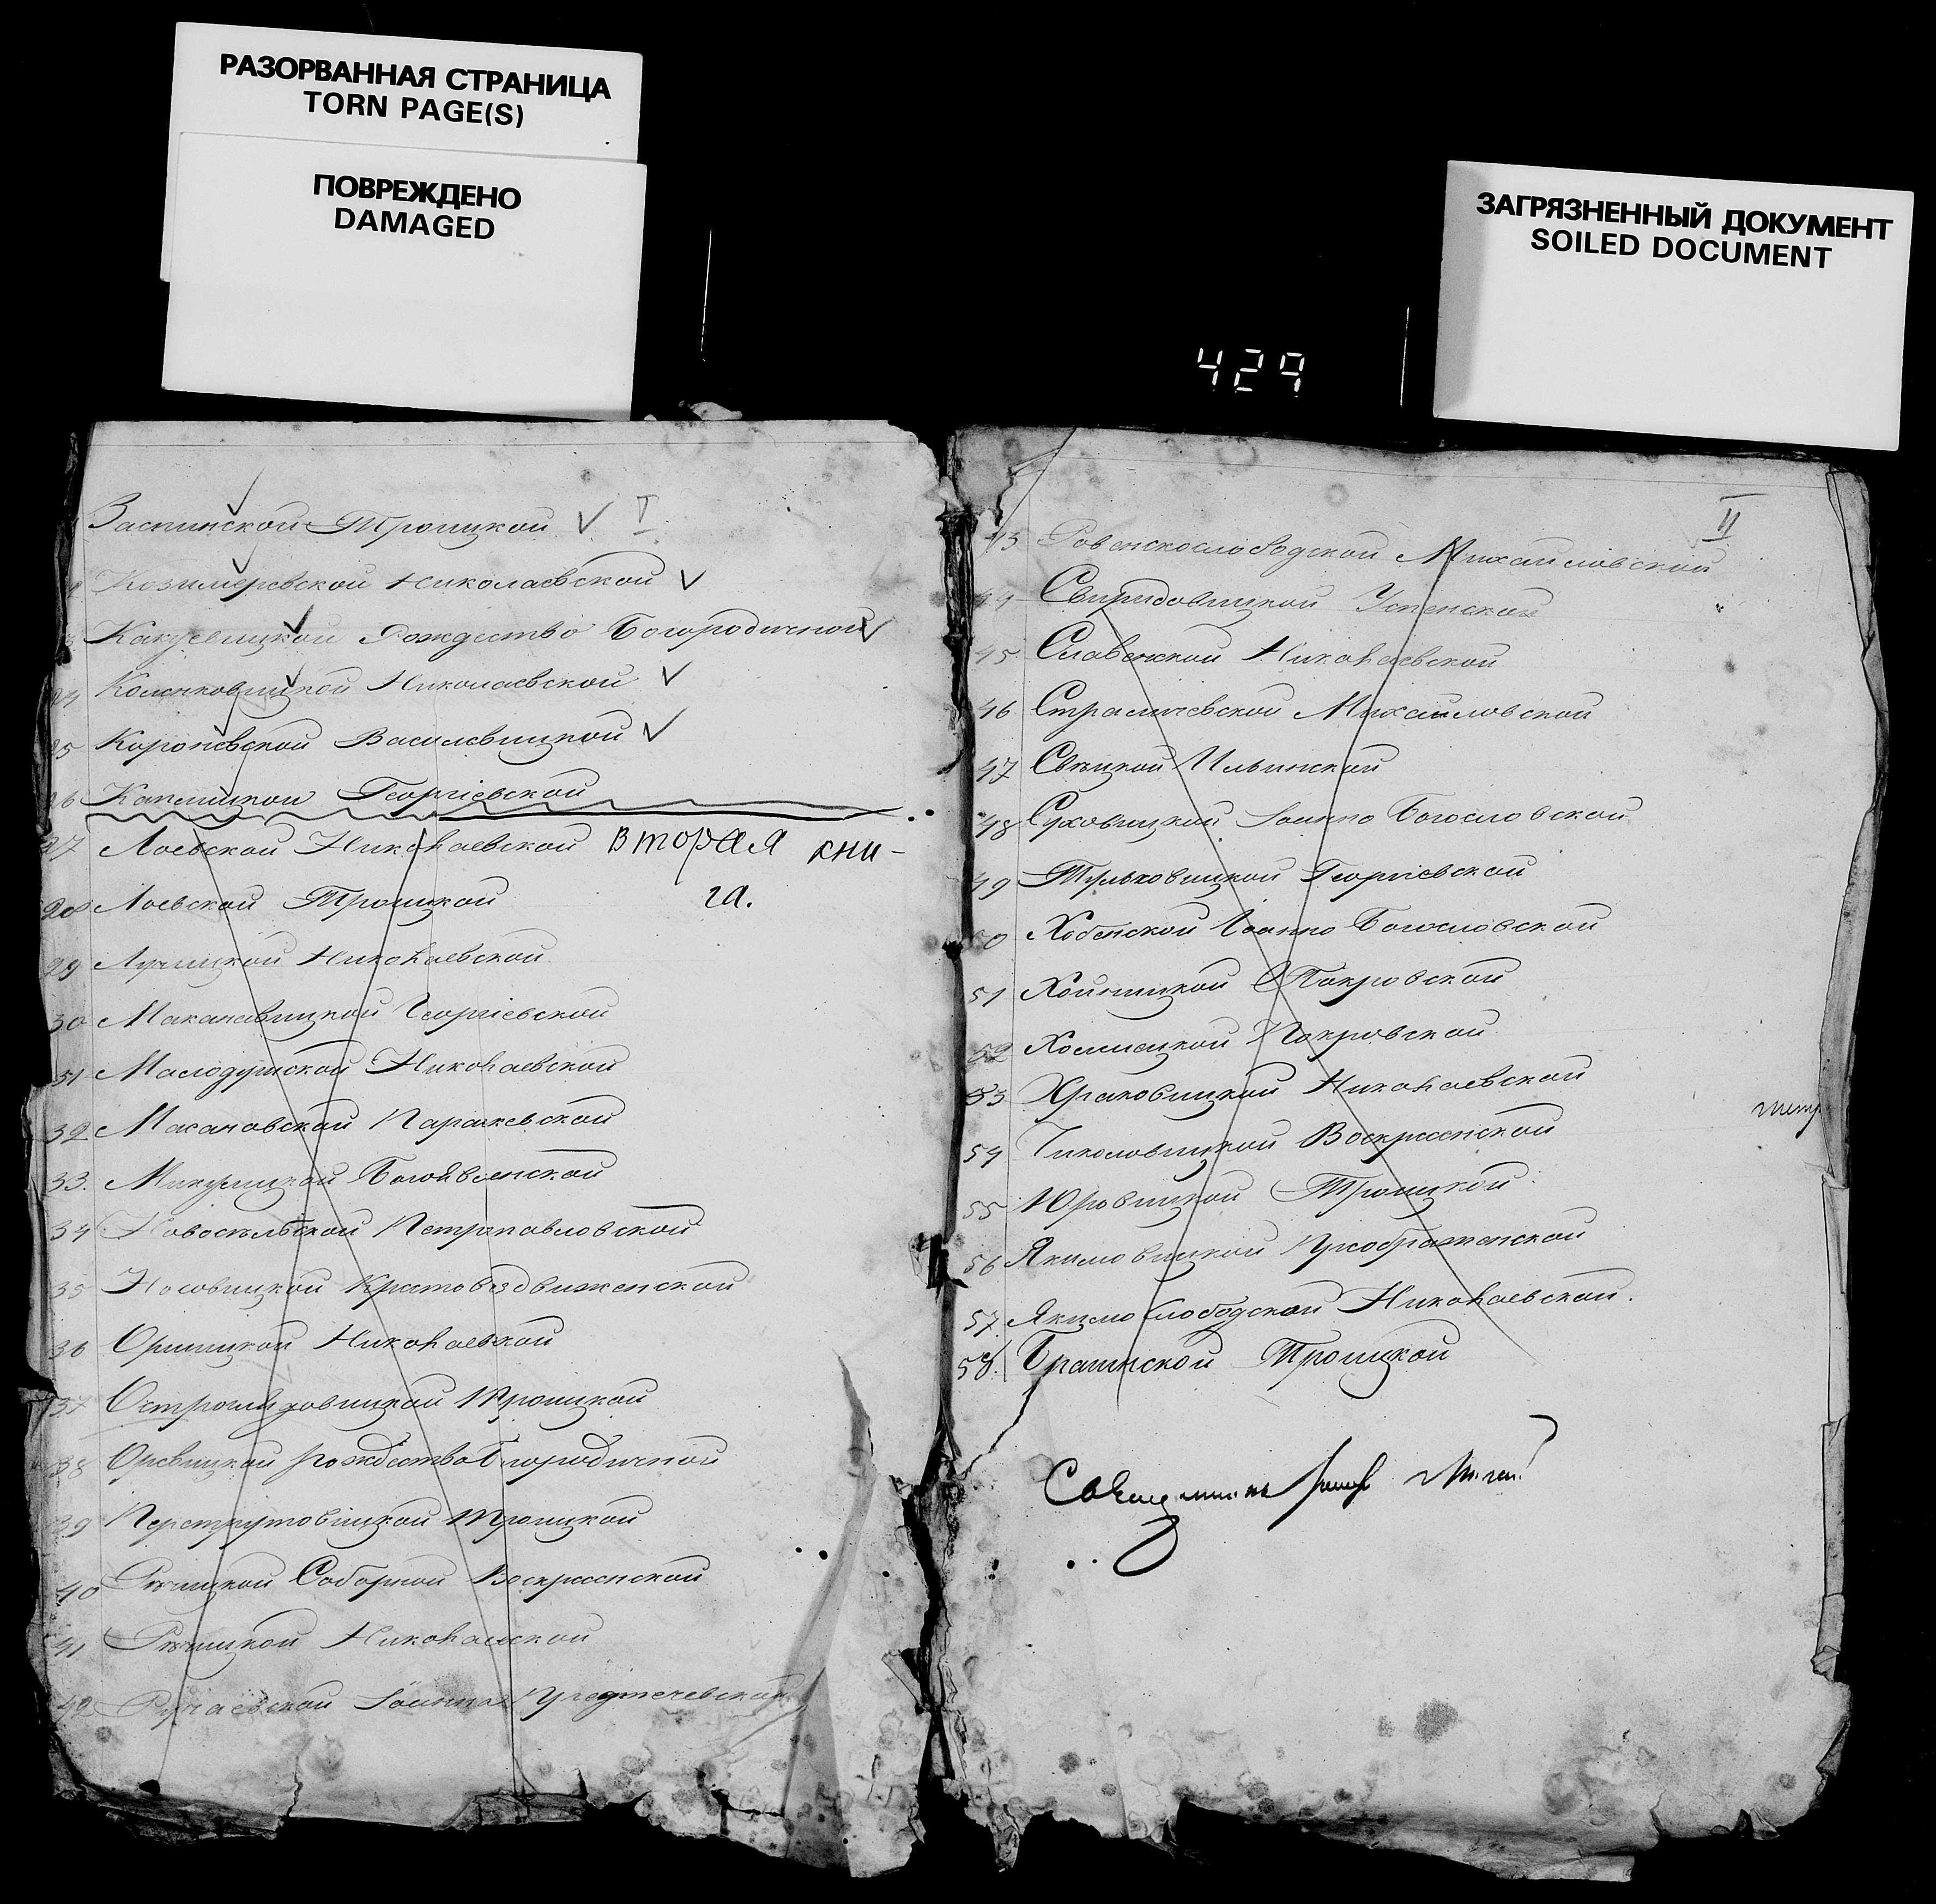 РАЗОРВАННАЯ СТРАНИЦА
TORN PAGE(S)
ПОВРЕЖДЕНО
DAMAGED
ЗАГРЯЗНЕННЫЙ ДОКУМЕНТ
SOILED DOCUMENT
429
Заспинской Троицкой I
Козимеревской Николаевской
Рождество Богородичной
24 Николаевской
25 Василевицкой
26 Капелицкой Георгіевской
27 Лоевской Николаевской вторая кни-
28 Лоевской Троицкой га.
29 Николаевской
30 Макановицкой Георгіевской
31 Малодушской Николаевской
32 Макановской Параскевской
33. Микулицкой Богоявленской
34 Новосельской Петропавловской
35 Носовицкой Крестовоздвиженской
36 Николаевской
37 Острогляд­овицкой Троицкой
38 Оревицкой Рождество Богородичной
39 Переструтовицкой Троицкой
40 Речицкой Соборной Воскресенской
41 Речицкой Николаевской
42 Ручаевской Іоанна Предтечевской
II
43 Ровенскослободской Михайловской
44 Свиридовицкой Успенской
45 Славенской Николаевской
46 Страличевской Михайловской
47 Свѣцкой Ильинской
48 Суховицкой Іоанно Богословской
49 Тульговицкой Георгіевской
50 Хобенской Іоанно Богословской
51 Хойницкой Покровской
52 Холмецкой Покровской
53 Храковицкой Николаевской
54 Чикаловицкой Воскресенской
55 Юровицкой Троицкой
56 Якимовицкой Преображенской
57. Якимослободской Николаевской.
58. Брагинской Троицкой